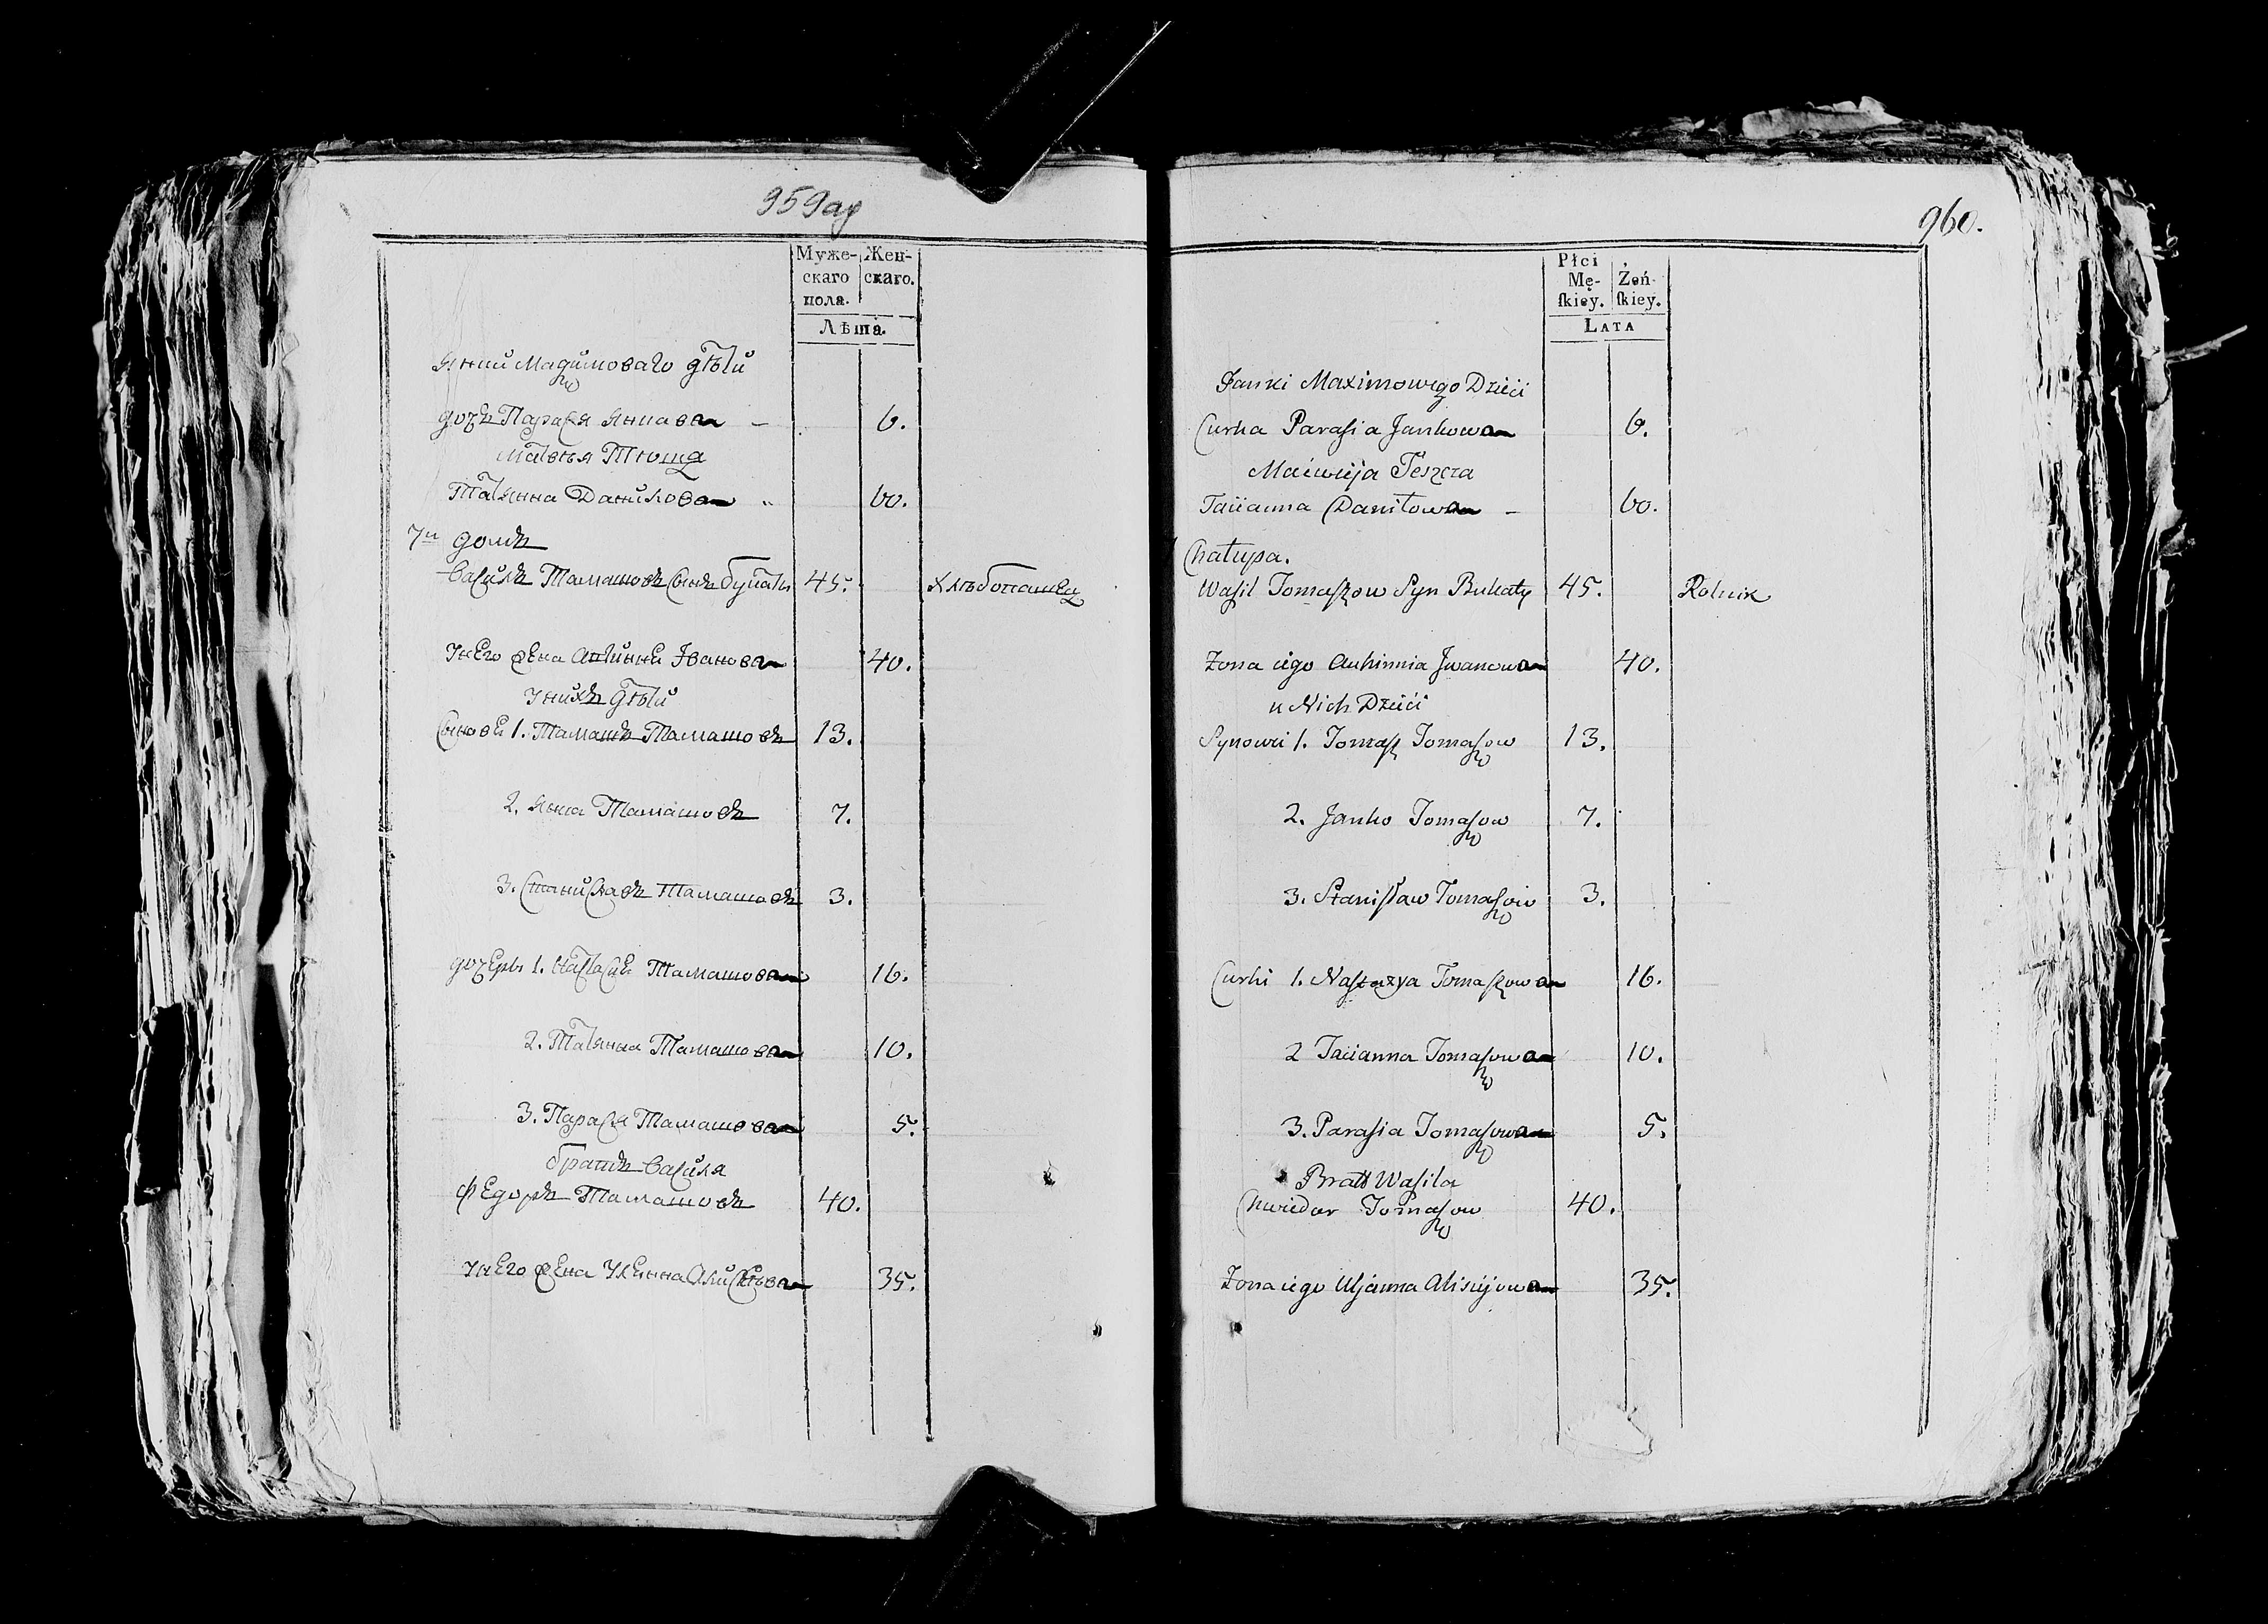 959 ад
Муже-
скаго
пола.
Жен-
скаго.
Лѣта.
Янки Мадимоваго дѣти
дочь Парася Янкова — 6.
Матвѣя Теща
Татянна Данилова " 60.
7й домъ
Василь Тамашовъ Сынъ букаты 45. Хлѣбопашец
Унего жена Апинни Іванова 40.
Унихъ дѣти
Сыновей 1. Тамашъ Тамашовъ 13.
2. Янка Тамашовъ 7.
3. Станиславъ Тамашовъ 3.
дочеръ 1. Настасия Тамашова 16.
2. Татянна Тамашова 10.
3. Парася Тамашова 5.
братъ Василя
Федоръ Тамашовъ 40.
Унего жена Улянна Алисѣева 35.
960.
Płci
Mę-
ſkiey.
Żeń-
ſkiey.
LATA
Janki Maximowego Dzieći
Curka Paraſia Jankowa 6.
Maćwieja Teszcza
Taciianna Daniłowa — 60.
Chatupa.
Waſil Tomaſzow Syn Bukaty 45. Rolnik
Zona iego Auhinnia Jwanowa 40.
u Nich Dzieći
Synowi 1. Tomaſz Tomaſow 13.
2. Janko Tomaſow 7.
3. Staniſław Tomaſow 3.
Curki 1. Naſtazya Tomaſzowa 16.
2 Taciianna Tomaſowa 10.
3. Paraſia Tomaſowa 5.
Bratt Waſila
Chwiedor Tomaſow 40.
Zona iego Uljanna Alisiejowa 35.